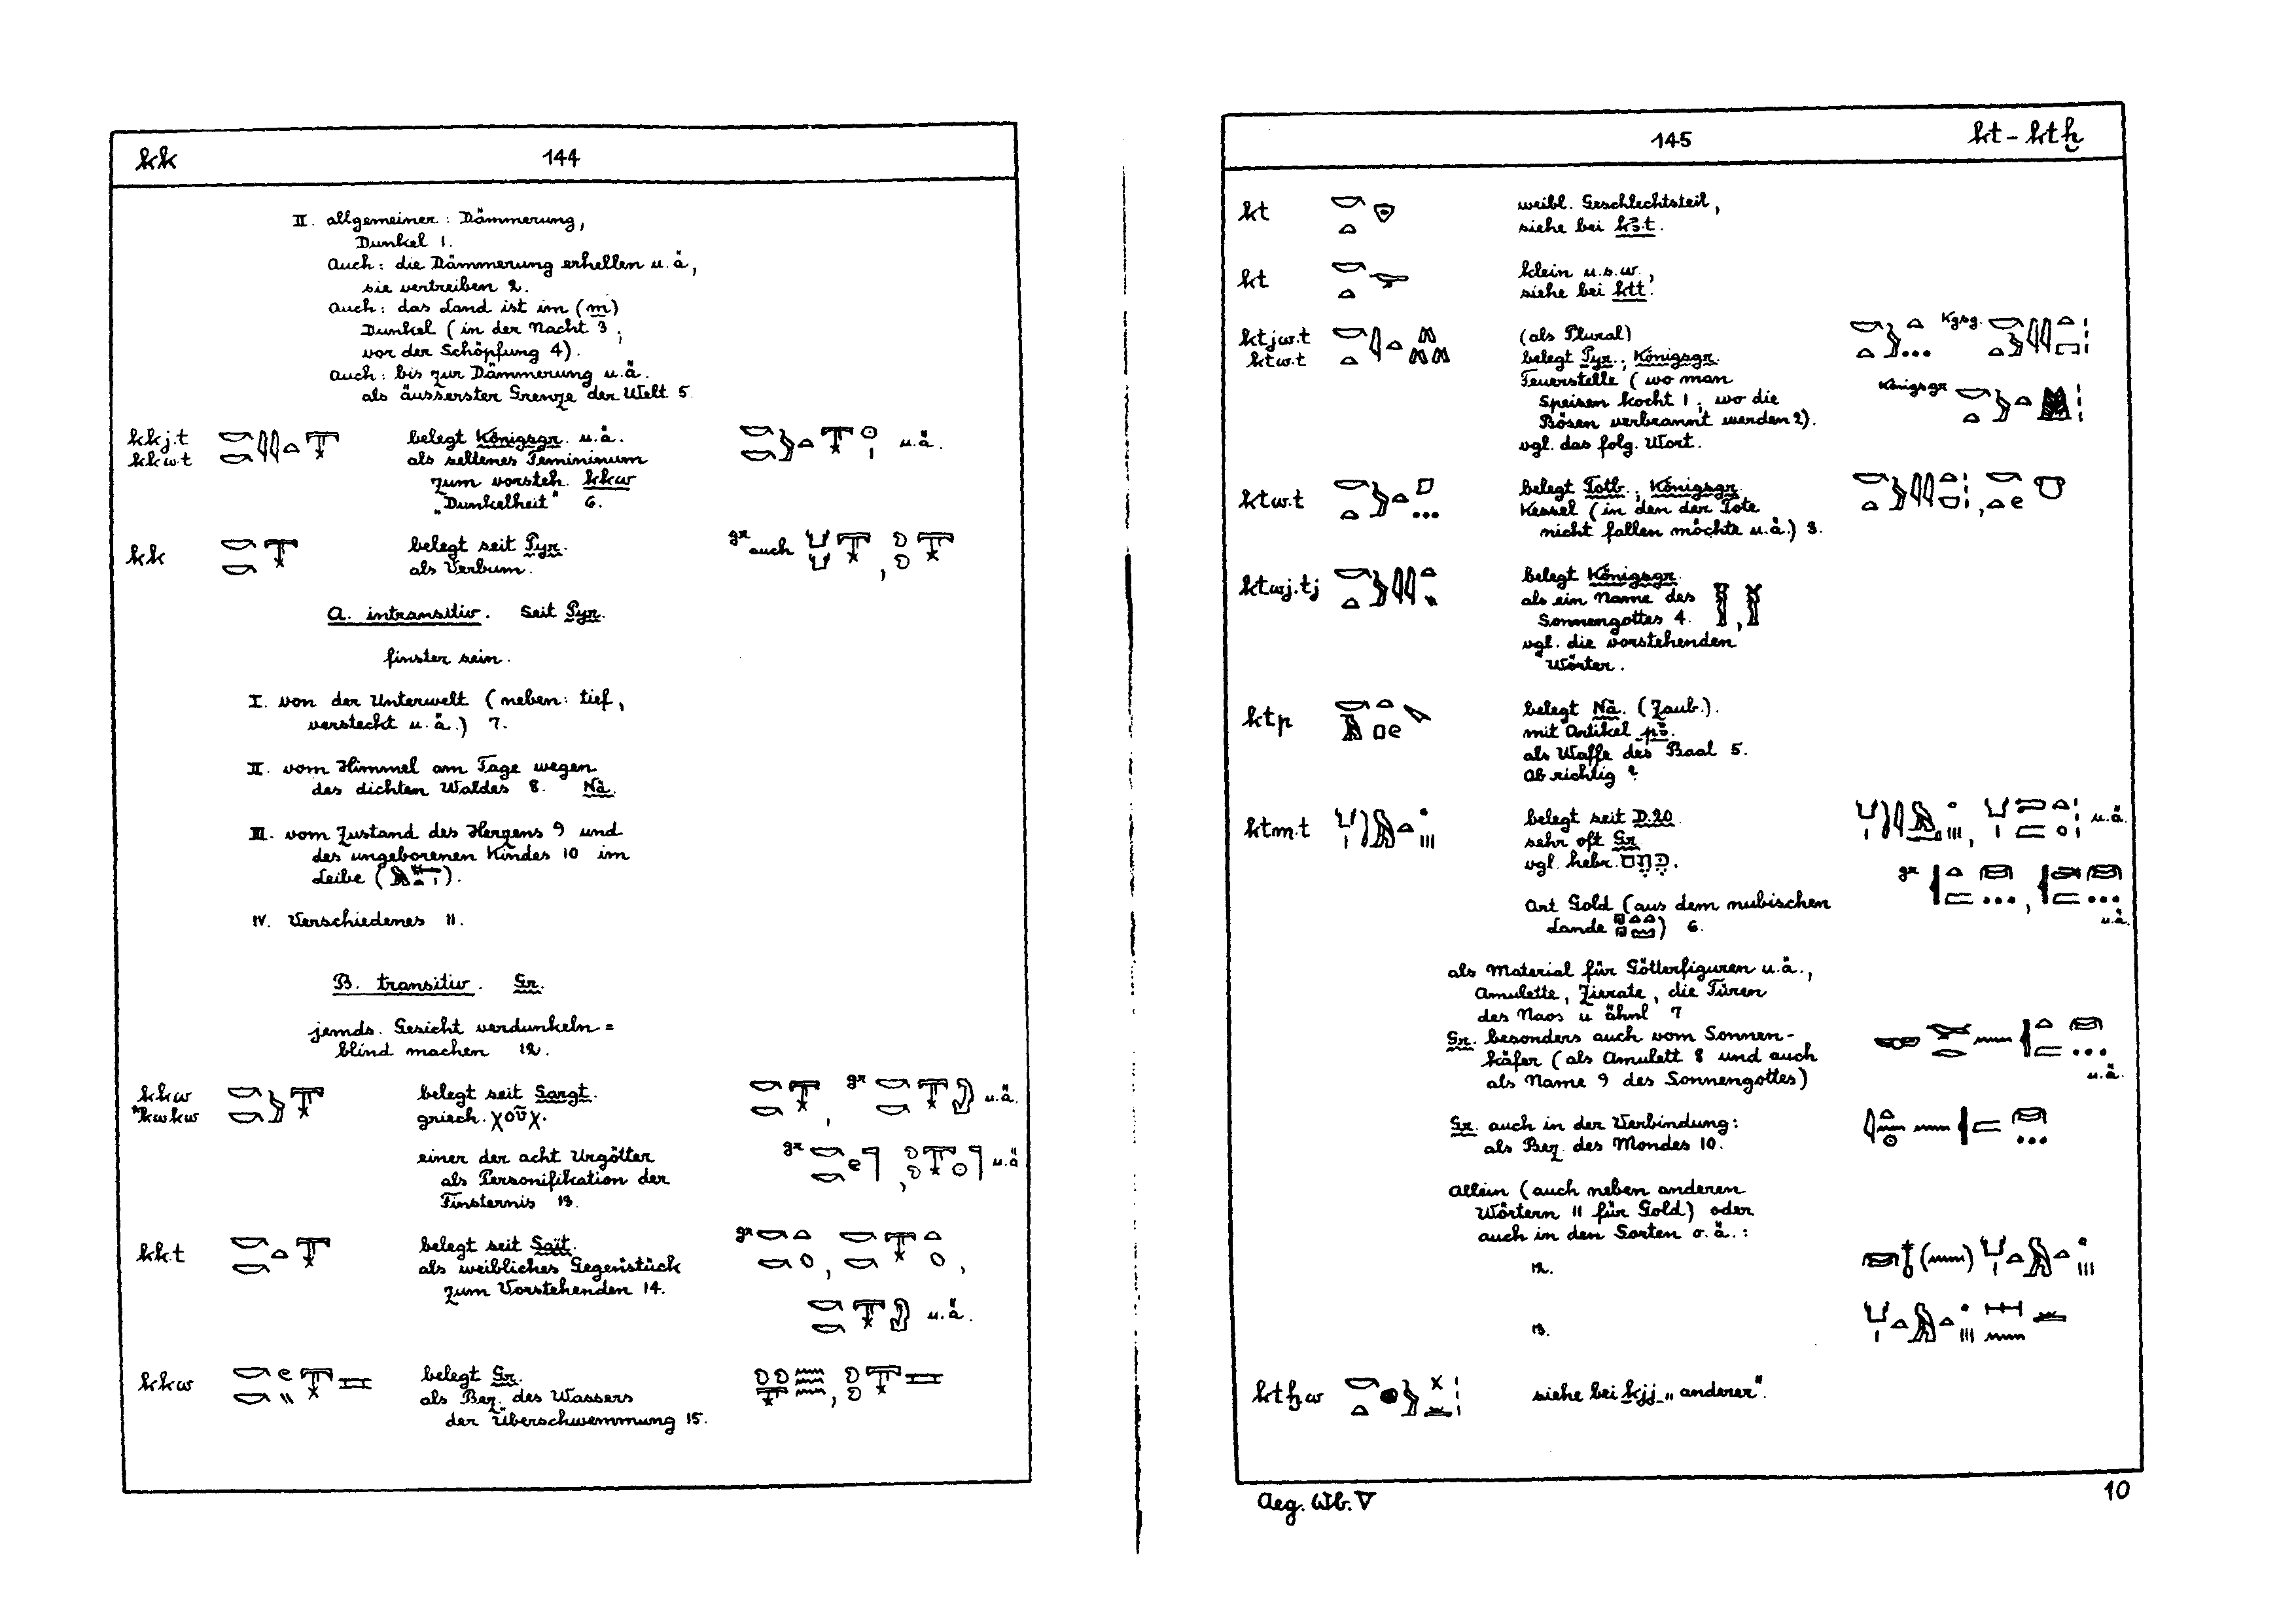 kk 144
II. allgemeiner: Dämmerung,
Dunkel 1.
Auch: die Dämmerung erhellen u.ä,
sie vertreiben 2.
Auch: das Land ist im (m)
Dunkel (in der Nacht 3;
vor der Schöpfung 4).
Auch: bis zur Dämmerung u.ä.
als äusserster Grenze der Welt 5.
kkj.t belegt Königsgr. u.ä.
kkw.t als seltenes Femininum u.ä.
zum vorsteh. kkw
„Dunkelheit" 6.
kk belegt seit Pyr. gr auch
als Verbum.
A. intransitiv. Seit Pyr.
finster sein.
I. von der Unterwelt (neben: tief,
versteckt u.ä.) 7.
II. vom Himmel am Tage wegen
des dichten Waldes 8. Nä.
III. vom Zustand des Herzens 9 und
des ungeborenen Kindes 10 im
Leibe ( ).
IV. Verschiedenes 11.
B. transitiv. Gr.
jemds. Gesicht verdunkeln =
blind machen 12.
kkw belegt seit Sargt. gr u.ä.
*kwkw griech. χοῦχ.
einer der acht Urgötter gr u.ä
als Personifikation der
Finsternis 13.
kk.t belegt seit Sait. gr
als weibliches Gegenstück
zum Vorstehenden 14.
u.ä.
kkw belegt Gr.
als Bez. des Wassers
der Überschwemmung 15.
145 kt - ktẖ
kt weibl. Geschlechtsteil,
siehe bei kꜣ.t.
kt klein u.s.w.,
siehe bei ktt.
ktjw.t (als Plural) Kgsg.
ktw.t belegt Pyr.; Königsgr.
Feuerstelle (wo man Königsgr
Speisen kocht 1; wo die
Bösen verbrannt werden 2).
vgl. das folg. Wort.
ktw.t belegt Totb.; Königsgr.
Kessel (in den der Tote
nicht fallen möchte u.ä.) 3.
ktwj.tj belegt Königsgr.
als ein Name des
Sonnengottes 4.
vgl. die vorstehenden
Wörter.
ktp belegt Nä. (Zaub.).
mit Artikel pꜣ.
als Waffe des Baal 5.
Ob richtig?
ktm.t belegt seit D.20. u.ä.
sehr oft Gr.
vgl. hebr. כֶּתֶם. gr
Art Gold (aus dem nubischen
Lande ) 6. u.ä.
als Material für Götterfiguren u.ä.,
Amulette, Zierate, die Türen
des Naos u ähnl 7
Gr. besonders auch vom Sonnen-
käfer (als Amulett 8 und auch
als Name 9 des Sonnengottes) u.ä.
Gr. auch in der Verbindung:
als Bez. des Mondes 10.
Allein (auch neben anderen
Wörtern 11 für Gold) oder
auch in den Sorten o.ä.:
12.
13.
ktḫw siehe bei kjj „anderer".
Aeg. Wb. V 10